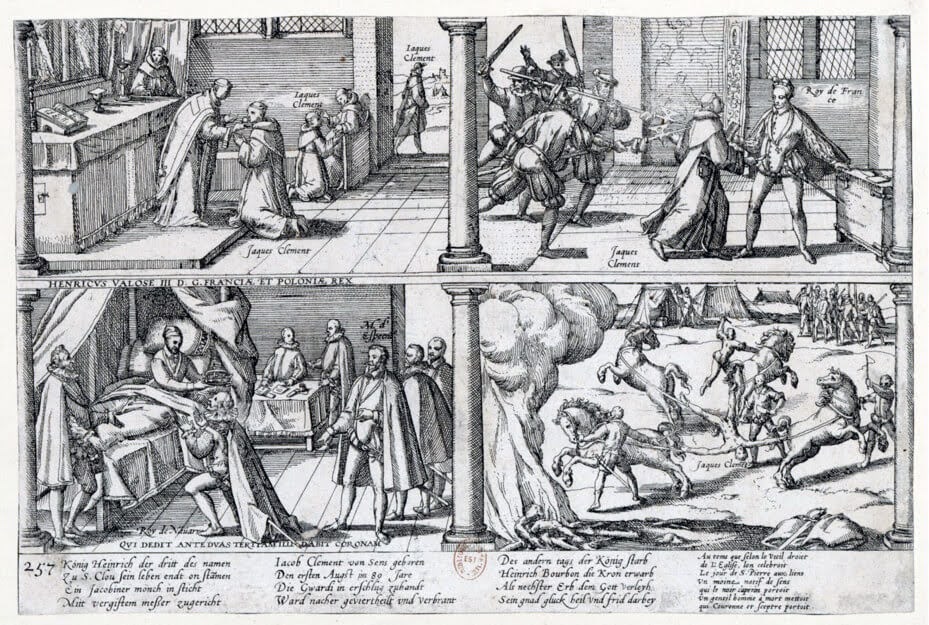 Iaques
Clement
Iaques
Clement
Jaques Clement
Roy de Fran
ce
Jaques
Clement
HENRICVS VALOSE III D. G. FRANCIÆ ET POLONIÆ REX
Roy de Nauare
Jaques Clement
QVI DEDIT ANTE DVAS TERTIAM ILLE DABIT CORONAM
257
König Heinrich der drit des namen
Zu S. Clou sein leben endt on stämen
Ein Jacobiner mönch in sticht
Mitt vergiftem messer zugericht
Iacob Clement von Sens geboren
Den ersten Augst in 89 Jare
Die Gwardi in erschlug zuhandt
Ward nacher geviertheilt vnd verbrant
Des andern tags der König starb
Heinrich Bourbon die Kron erwarb
Als nechster Erb dem Gott verleyh
Sein gnad glück heil vnd frid darbey
Au tems que selon le vieil droict
de l'Eglise, lon celebroit
Le jour de S. Pierre aux liens
Un moine natif de sens
qui le noir capuchin portoit
Un gentil homme a mort mettoit
qui Couronne et sceptre portoit